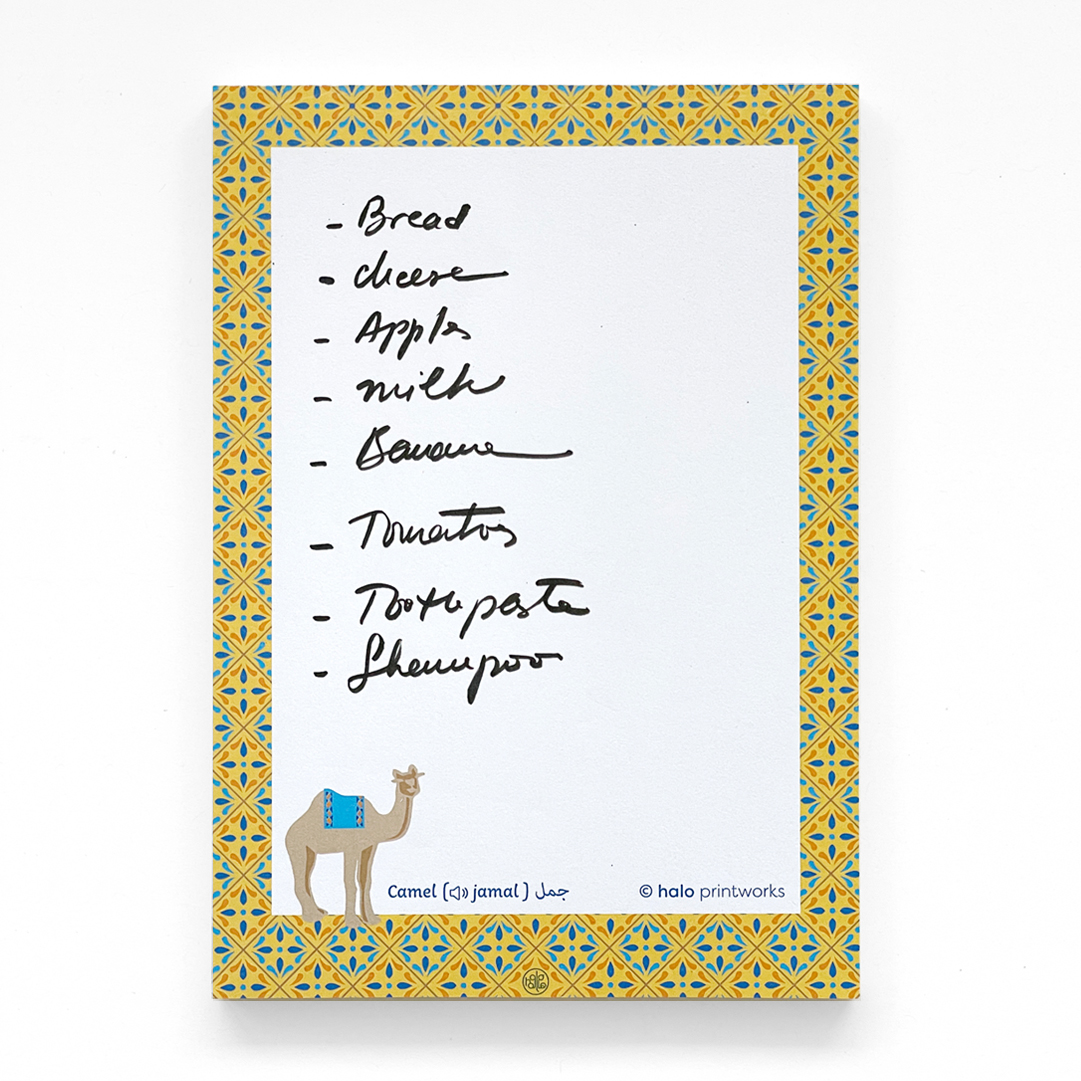 - Bread
- cheese
- Apples
- milk
- Banana
- Tomatos
- Toothpaste
- Shampoo
Camel (jamal) جمل
© halo printworks
halo